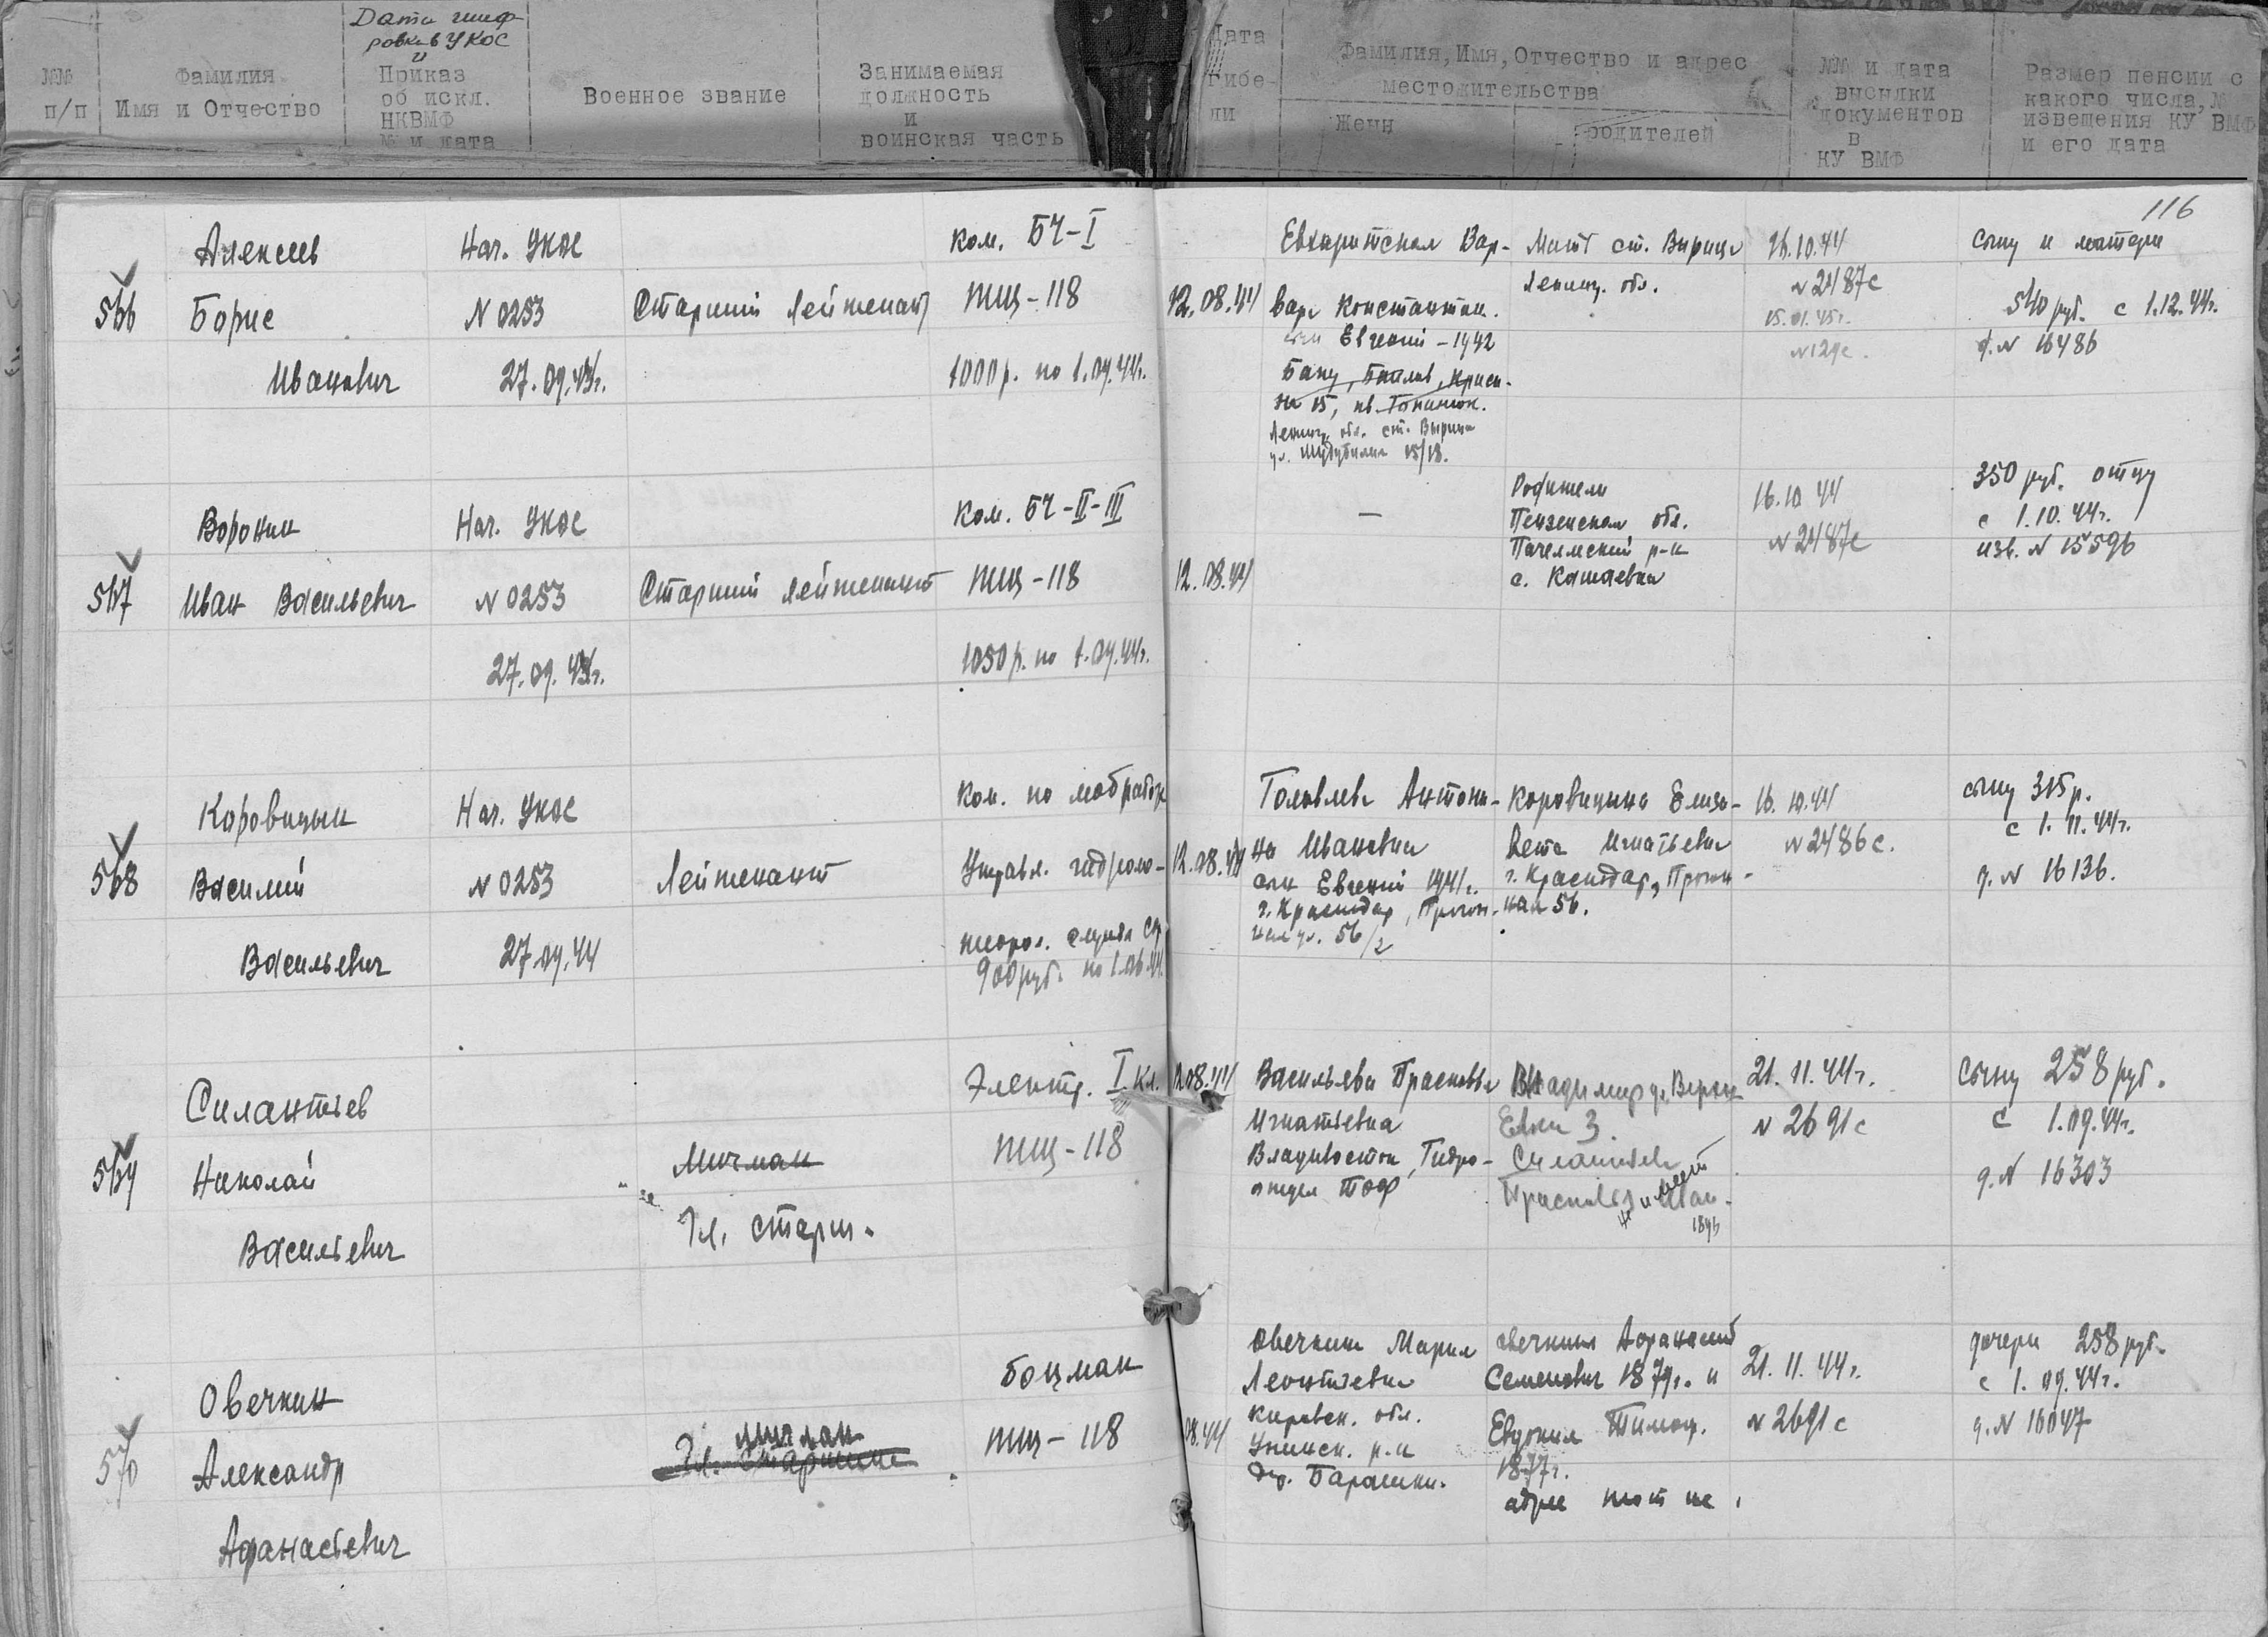 Дата шиф-
ровки в УКОС
и
№№
п/п
Фамилия
Имя и Отчество
Приказ
об искл.
НКВМФ
№ и дата
Военное звание
Занимаемая
должность
и
воинская часть
Дата
гибе-
ли
Фамилия, Имя, Отчество и адрес
местожительства
Жены
родителей
№№ и дата
высылки
документов
в
КУ ВМФ
Размер пенсии с
какого числа, №
извещения КУ ВМФ
и его дата
116
566
Алексеев
Борис
Иванович
Нач. УКОС
N 0253
27.09.44г.
Старший лейтенант
Ком. БЧ-I
ПЩ-118
1000 р. по 1.09.44г.
12.08.44
Евхаритская Вар-
вара Константин.
сын Евгений - 1942
Баку, Баилов, Красн.
15, кв.
Ленингр. обл. ст. Вырица
ул. 15/18.
Мать ст. Вырица
Ленингр. обл.
16.10.44
N 2487с
15.01.45г.
N 129с.
Сыну и матери
540 руб. с 1.12.44г.
д. N 16486
567
Воронин
Иван Васильевич
Нач. УКОС
N 0253
27.09.44г.
Старший лейтенант
Ком. БЧ-II-III
ПЩ-118
1050 р. по 1.09.44г.
12.08.44
—
Родители
Пензенская обл.
Пачелмский р-н
с. Кашаевка
16.10 44
N 2487с
350 руб. отцу
с 1.10.44г.
изв. N 15596
568
Коровицын
Василий
Васильевич
Нач. УКОС
N 0253
27.09.44
Лейтенант
Ком. по
Управл. гидроме-
теорол. служ
900 руб. по 1.06.44
12.08.44
Головлева Антони-
на Ивановна
сын Евгений 1941г.
г. Краснодар, Прогон-
ная ул. 56/2
Коровицына Елиза-
вета Игнатьевна
г. Краснодар, Прогон-
ная 56.
16.10.44
N 2486с.
сыну 315 р.
с 1.11.44г.
д. N 16136.
569
Силантьев
Николай
Васильевич
Мичман
Гл. старш.
Электр. I кл.
ПЩ-118
12.08.44
Васильева Прасковья
Игнатьевна
Владивосток, Гидро-
отдел ТОФ
Владимир
3.
Силантьева
Прасковья
1896
21.11.44г.
N 2691с
Сыну 258 руб.
с 1.09.44г.
д. N 16303
570
Овечкин
Александр
Афанасьевич
мичман
Гл. Старшина
Боцман
ПЩ-118
08.44
Овечкина Мария
Леонтьевна
Кировск. обл.
Унинск. р-н
дер. Барашки.
Овечкин Афанасий
Семенович 1879г. и
Евдокия Тимоф.
1877г.
адрес тот же.
21.11.44г.
N 2691с
дочери 258 руб.
с 1.09.44г.
д. N 16047